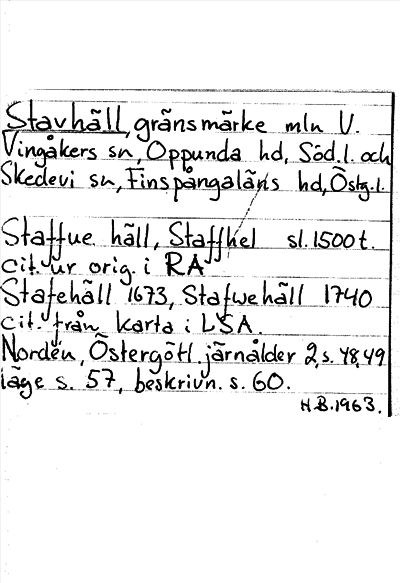 Stavhäll, gränsmärke mln V.
Vingåkers sn, Oppunda hd, Söd.l. och
Skedevi sn, Finspångaläns hd, Östg.l.
Staffue häll, Staffhel sl. 1500 t.
cit. ur orig. i RA
Stafehäll 1673, Stafwehäll 1740
cit. från karta i LSA.
Nordén, Östergötl. järnålder 2, s. 48, 49
läge s. 57, beskrivn. s. 60.
H.B. 1963.